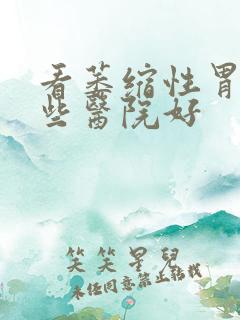 看萎缩性胃
些醫院好
笑笑星兒
未经同意禁止转载